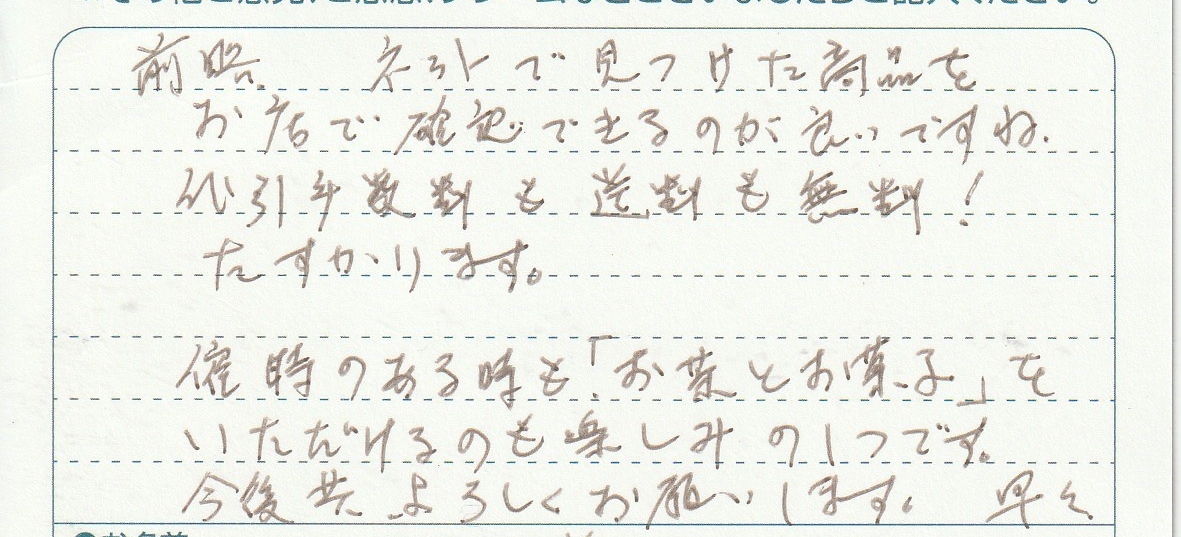 前略　ネットで見つけた商品を
お店で確認できるのが良いですね.
代引手数料も送料も無料!
たすかります。
催時のある時も「お茶とお菓子」を
いただけるのも楽しみの1つです。
今後共よろしくお願いします。　早々
お名前